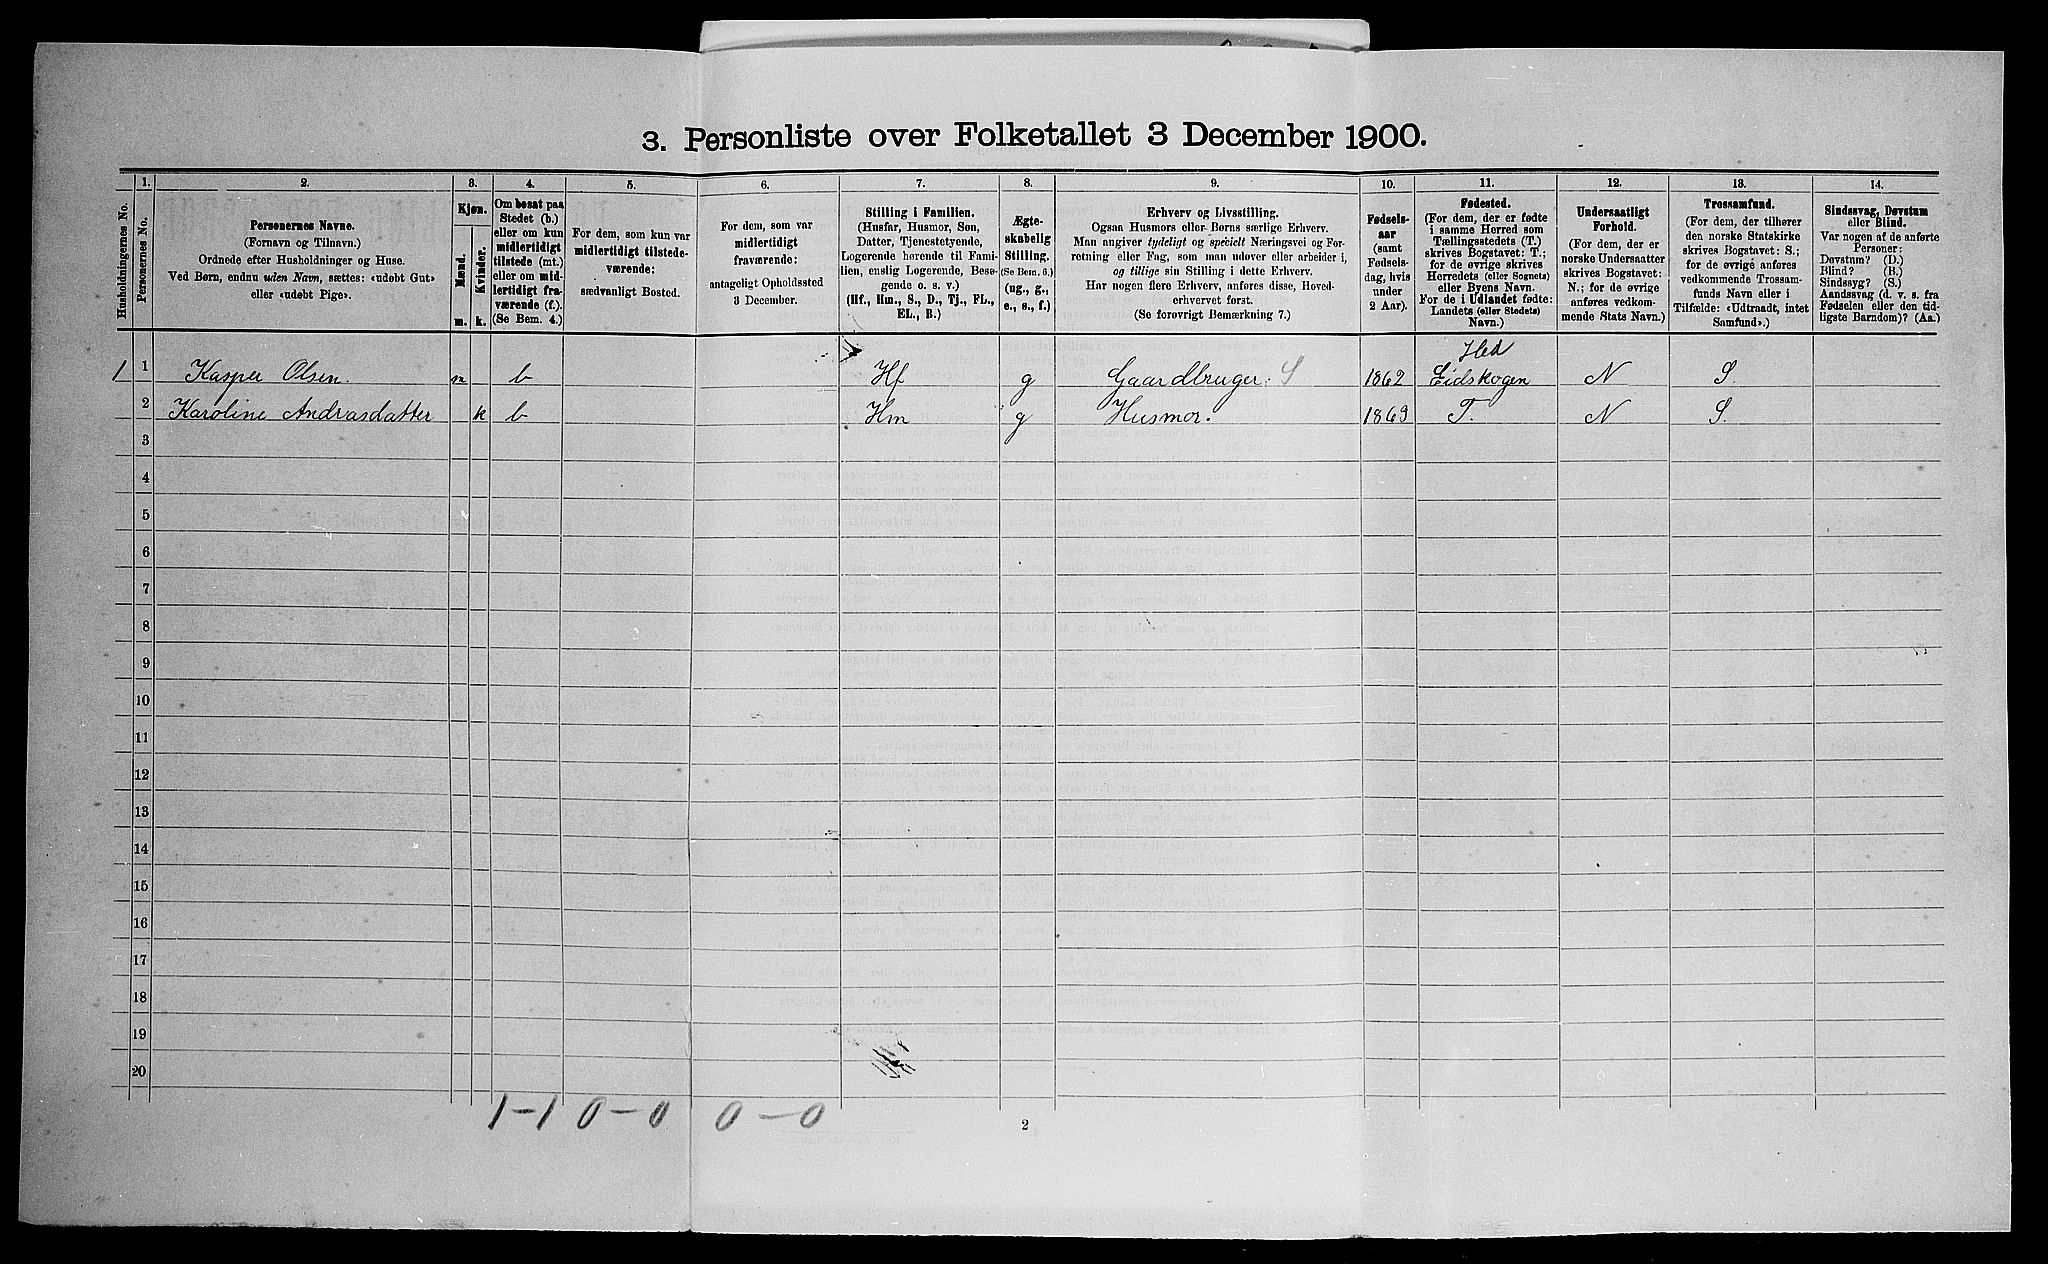 3. Personliste over Folketallet 3 December 1900.
Husholdningernes No.
1.
Personernes No.
2.
Personernes Navne.
(Fornavn og Tilnavn.)
Ordnede efter Husholdninger og Huse.
Ved Børn, endnu uden Navn, sættes: «udøbt Gut»
eller «udøbt Pige».
3.
Kjøn.
Mænd.
m.
Kvinder.
k.
4.
Om bosat paa
Stedet (b.)
eller om kun
midlertidigt
tilstede (mt.)
eller om mid-
lertidigt fra-
værende (f.)
(Se Bem. 4.)
5.
For dem, som kun var
midlertidigt tilstede-
værende:
sædvanligt Bosted.
6.
For dem, som var
midlertidigt
fraværende:
antageligt Opholdssted
3 December.
7.
Stilling i Familien.
(Husfar, Husmor, Søn,
Datter, Tjenestetyende,
Logerende hørende til Fami-
lien, enslig Logerende, Besø-
gende o. s. v.)
(Hf., Hm., S., D., Tj., FL.,
EL., B.)
8.
Ægte-
skabelig
Stilling.
(Se Bem. 6.)
(ug., g.,
e., s., f.)
9.
Erhverv og Livsstilling.
Ogsaa Husmors eller Børns særlige Erhverv.
Man angiver tydeligt og specielt Næringsvei og For-
retning eller Fag, som man udøver eller arbeider i,
og tillige sin Stilling i dette Erhverv.
Har nogen flere Erhverv, anføres disse, Hoved-
erhvervet først.
(Se forøvrigt Bemærkning 7.)
10.
Fødsels-
aar
(samt
Fødsels-
dag, hvis
under
2 Aar).
11.
Fødested.
(For dem, der er fødte
i samme Herred som
Tællingsstedets (T.)
skrives Bogstavet: T.;
for de øvrige skrives
Herredets (eller Sognets)
eller Byens Navn.
For de i Udlandet fødte:
Landets (eller Stedets)
Navn.)
12.
Undersaatligt
Forhold.
(For dem, der er
norske Undersaatter
skrives Bogstavet:
N.; for de øvrige
anføres vedkom-
mende Stats Navn.)
13.
Trossamfund.
(For dem, der tilhører
den norske Statskirke
skrives Bogstavet: S.;
for de øvrige anføres
vedkommende Trossam-
funds Navn eller i
Tilfælde: «Udtraadt, intet
Samfund».)
14.
Sindssvag, Døvstum
eller Blind.
Var nogen af de anførte
Personer:
Døvstum? (D.)
Blind? (B.)
Sindssyg? (S.)
Aandssvag (d. v. s. fra
Fødselen eller den tid-
ligste Barndom)? (Aa.)
1 1 Kasper Olsen. m b Hf g Gaardbruger. S 1862 Hed Eidskogen N S.
2 Karoline Andrasdatter k b Hm g Husmor. 1869 T. N S.
3
4
5
6
7
8
9
10
11
12
13
14
15
16
17
18
19
20
1-1 0-0 0-0
2